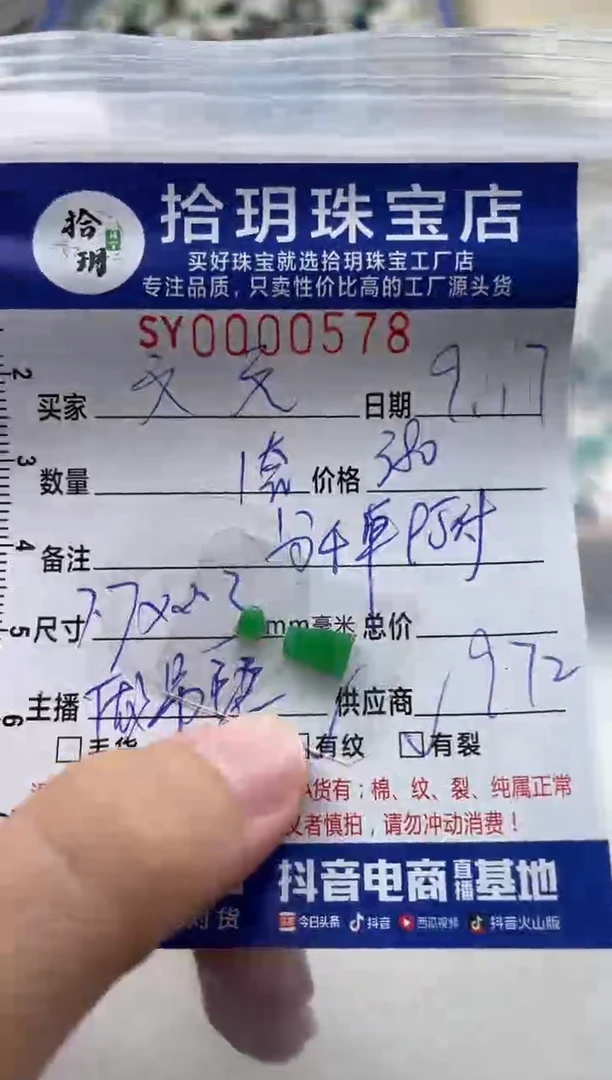 拾玥
拾玥珠宝店
买好珠宝就选拾玥珠宝工厂店
专注品质，只卖性价比高的工厂源头货
SY0000578
2
买家 文元 日期 9.17
3
数量 1套 价格 380
4
备注
5 尺寸 mm毫米 总价
6 主播 做吊坠 供应商 9.72
有纹 有裂
A货有：棉、纹、裂、纯属正常
者慎拍，请勿冲动消费！
抖音电商直播基地
对货 今日头条 抖音 西瓜视频 抖音火山版